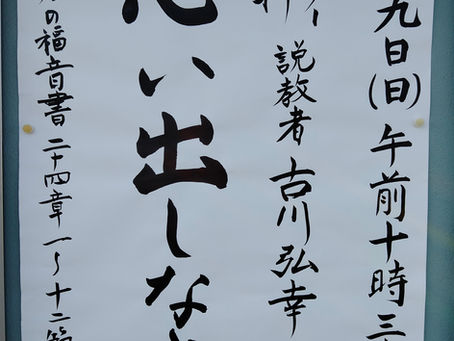 九日(日)午前十時三
説教者 古川弘幸
い出しな
の福音書 二十四章 一〜十二節